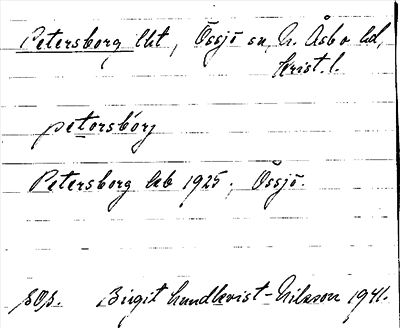 Petersborg lht, Össjö sn, N. Åsbo hd,
Krist. l.
petorsbórj
Petersborg kb 1925, Össjö.
SOS. Birgit Lundkvist-Nilsson 1941.